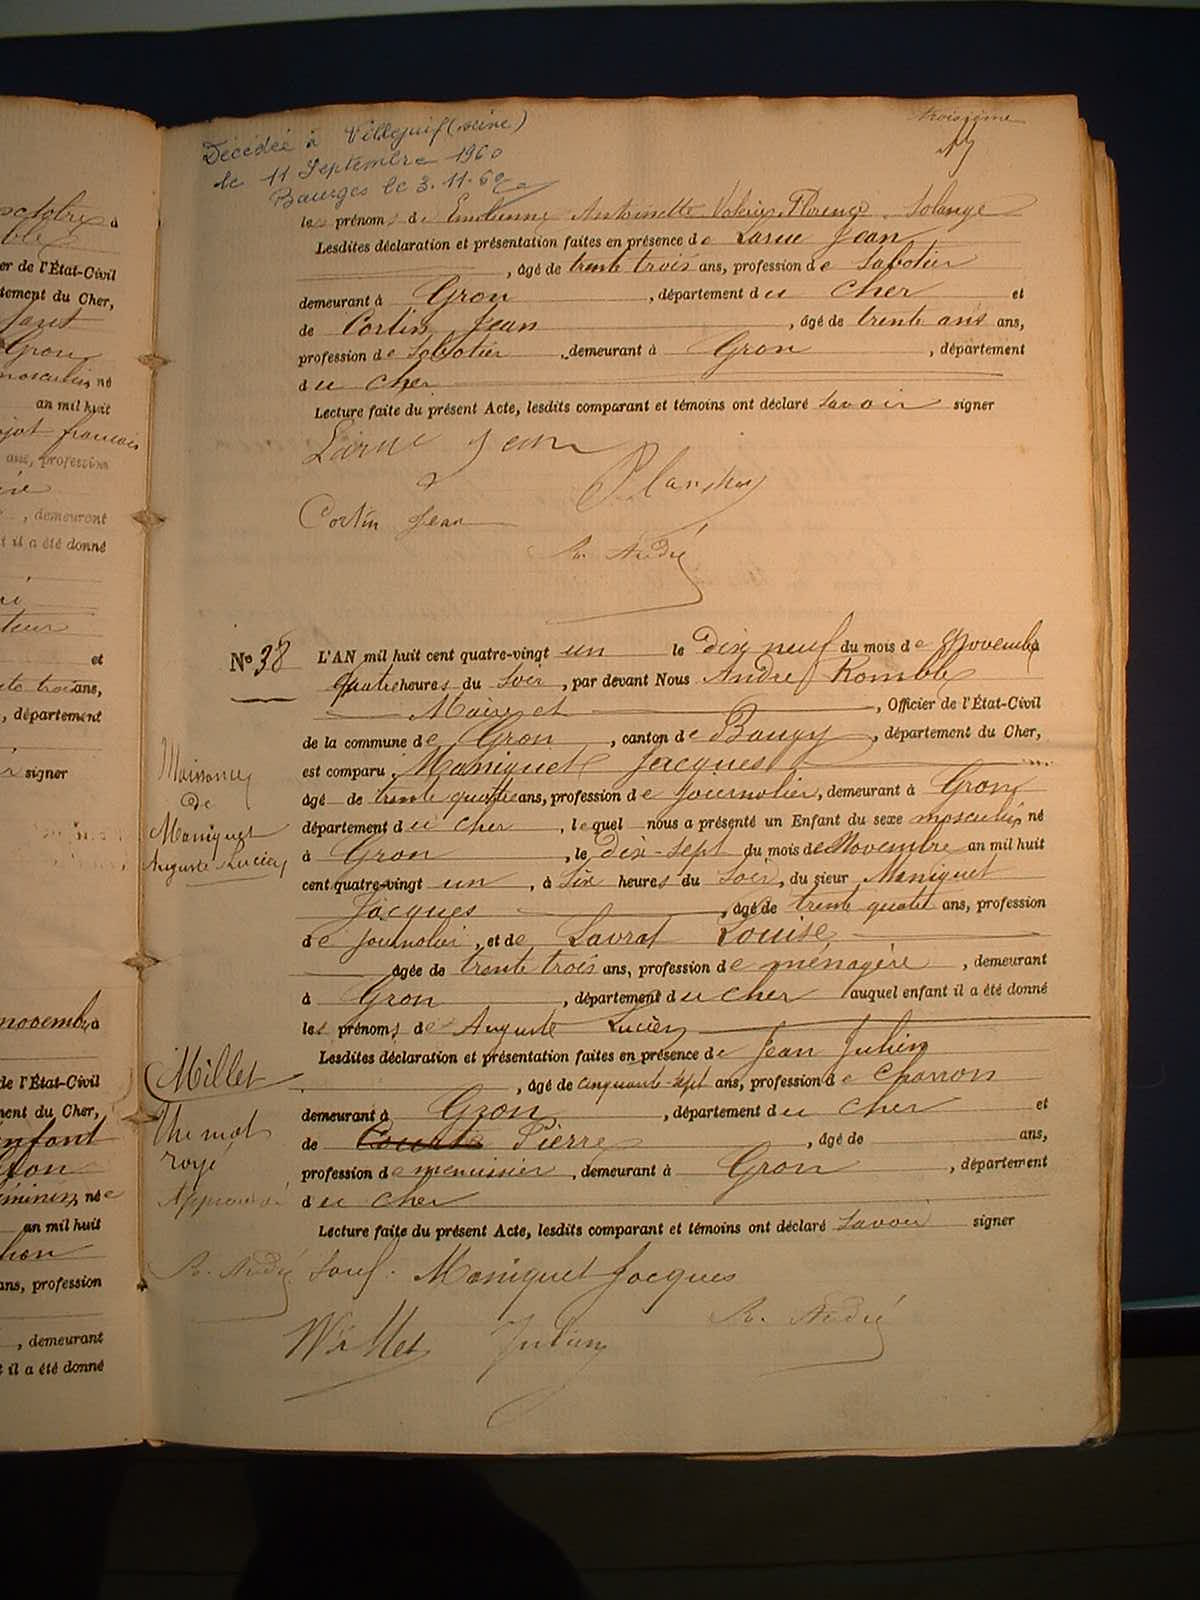 octobre à
er de l'État-Civil
tement du Cher,
Gron
masculin né
an mil huit
français
ans, profession
, demeurant
t il a été donné
et
trois ans,
, département
signer
novembre à
de l'État-Civil
ment du Cher,
enfant
féminin née
an mil huit
ans, profession
, demeurant
t il a été donné
troisième
Décédée à Villejuif (seine)
le 11 Septembre 1960
Bourges le 3.11.60
les prénoms de Emilienne Antoinette Valérie Florence Solange
Lesdites déclaration et présentation faites en présence de Larue Jean
, âgé de trente trois ans, profession de Sabotier
demeurant à Gron, département du Cher et
de Cortin Jean, âgé de trente ans ans,
profession de Sabotier, demeurant à Gron, département
du cher
Lecture faite du présent Acte, lesdits comparant et témoins ont déclaré savoir signer
Larue Jean
Cortin Jean
R. André
N° 38 L'AN mil huit cent quatre-vingt un le Dix neuf du mois de Novembre à
quatre heures du Soir, par devant Nous André Romble
Maire et, Officier de l'État-Civil
de la commune de Gron, canton de Baugy, département du Cher,
est comparu Maniquet Jacques
âgé de trente quatre ans, profession de journalier, demeurant à Gron
département du cher, lequel nous a présenté un Enfant du sexe masculin né
à Gron, le Dix-Sept du mois de Novembre an mil huit
cent quatre-vingt un, à Six heures du Soir, du sieur Maniquet
Jacques, âgé de trente quatre ans, profession
de journalier, et de Lavrat Louise
âgée de trente trois ans, profession de ménagère, demeurant
à Gron, département du cher auquel enfant il a été donné
les prénoms de Auguste Lucien
Lesdites déclaration et présentation faites en présence de Jean Julien
, âgé de cinquante-sept ans, profession de charron
demeurant à Gron, département du cher et
de Pierre, âgé de ans,
profession de menuisier, demeurant à Gron, département
du cher
Lecture faite du présent Acte, lesdits comparant et témoins ont déclaré savoir signer
Naissance
de
Maniquet
Auguste Lucien
Millet
Un mot
rayé
Approuvé
R. André
sauf Maniquet Jacques
Millet Julien R. André